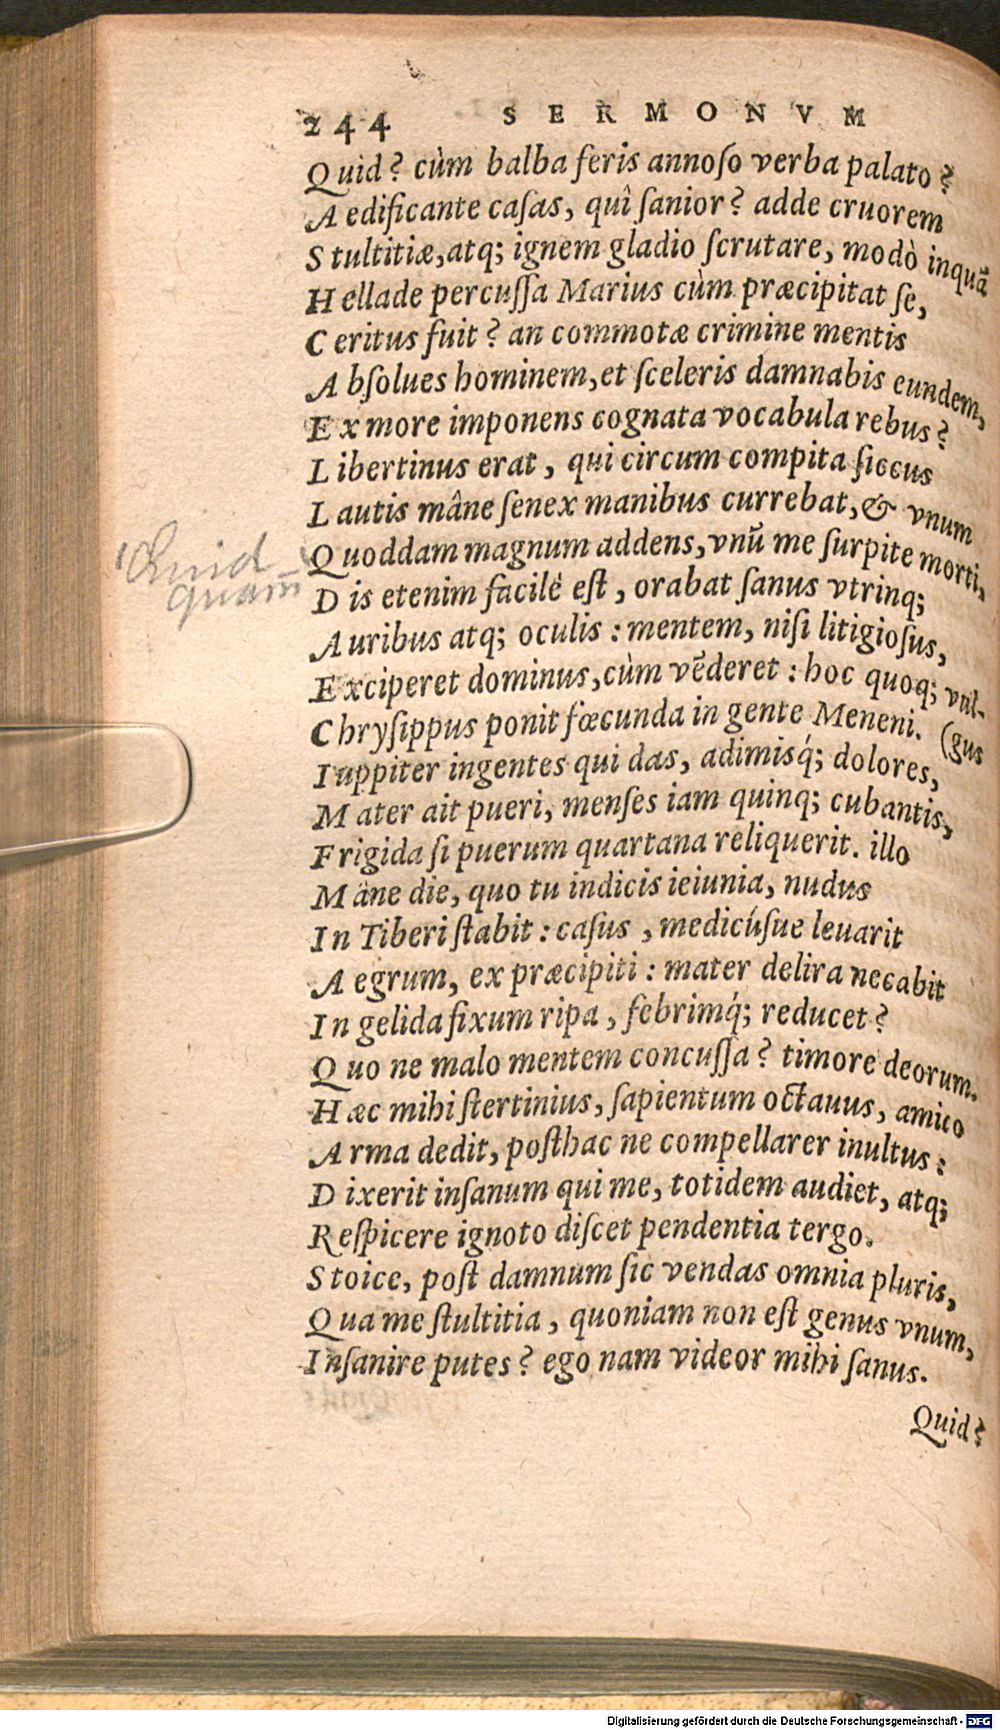 244 SERMONVM
Quid? cùm balba feris annoſo verba palato?
Aedificante caſas, quî ſanior? adde cruorem
Stultitiæ, atq; ignem gladio ſcrutare, modò inquã
Hellade percuſſa Marius cùm præcipitat ſe,
Ceritus fuit? an commotæ crimine mentis
Abſolues hominem, et ſceleris damnabis eundem,
Ex more imponens cognata vocabula rebus?
Libertinus erat, qui circum compita ſiccus
Lautis mâne ſenex manibus currebat, & vnum
Quoddam magnum addens, vnũ me ſurpite morti,
Quid
quam̃
Dis etenim facilë eſt, orabat ſanus vtrinq;
Auribus atq; oculis: mentem, niſi litigioſus,
Exciperet dominus, cùm vẽderet: hoc quoq; vul-
Chryſippus ponit fœcunda in gente Meneni. (gus
Iuppiter ingentes qui das, adimisq́; dolores,
Mater ait pueri, menſes iam quinq; cubantis,
Frigida ſi puerum quartana reliquerit. illo
Mâne die, quo tu indicis ieiunia, nudus
In Tiberi ſtabit: caſus, medicúſue leuarit
Aegrum, ex præcipiti: mater delira necabit
In gelida fixum ripa, febrimq́; reducet?
Quo ne malo mentem concuſſa? timore deorum.
Hæc mihi ſtertinius, ſapientum octauus, amico
Arma dedit, poſthac ne compellarer inultus:
Dixerit inſanum qui me, totidem audiet, atq;
Reſpicere ignoto diſcet pendentia tergo.
Stoice, poſt damnum ſic vendas omnia pluris,
Qua me ſtultitia, quoniam non eſt genus vnum,
Inſanire putes? ego nam videor mihi ſanus.
Quid?
Digitalisierung gefördert durch die Deutsche Forschungsgemeinschaft - DFG